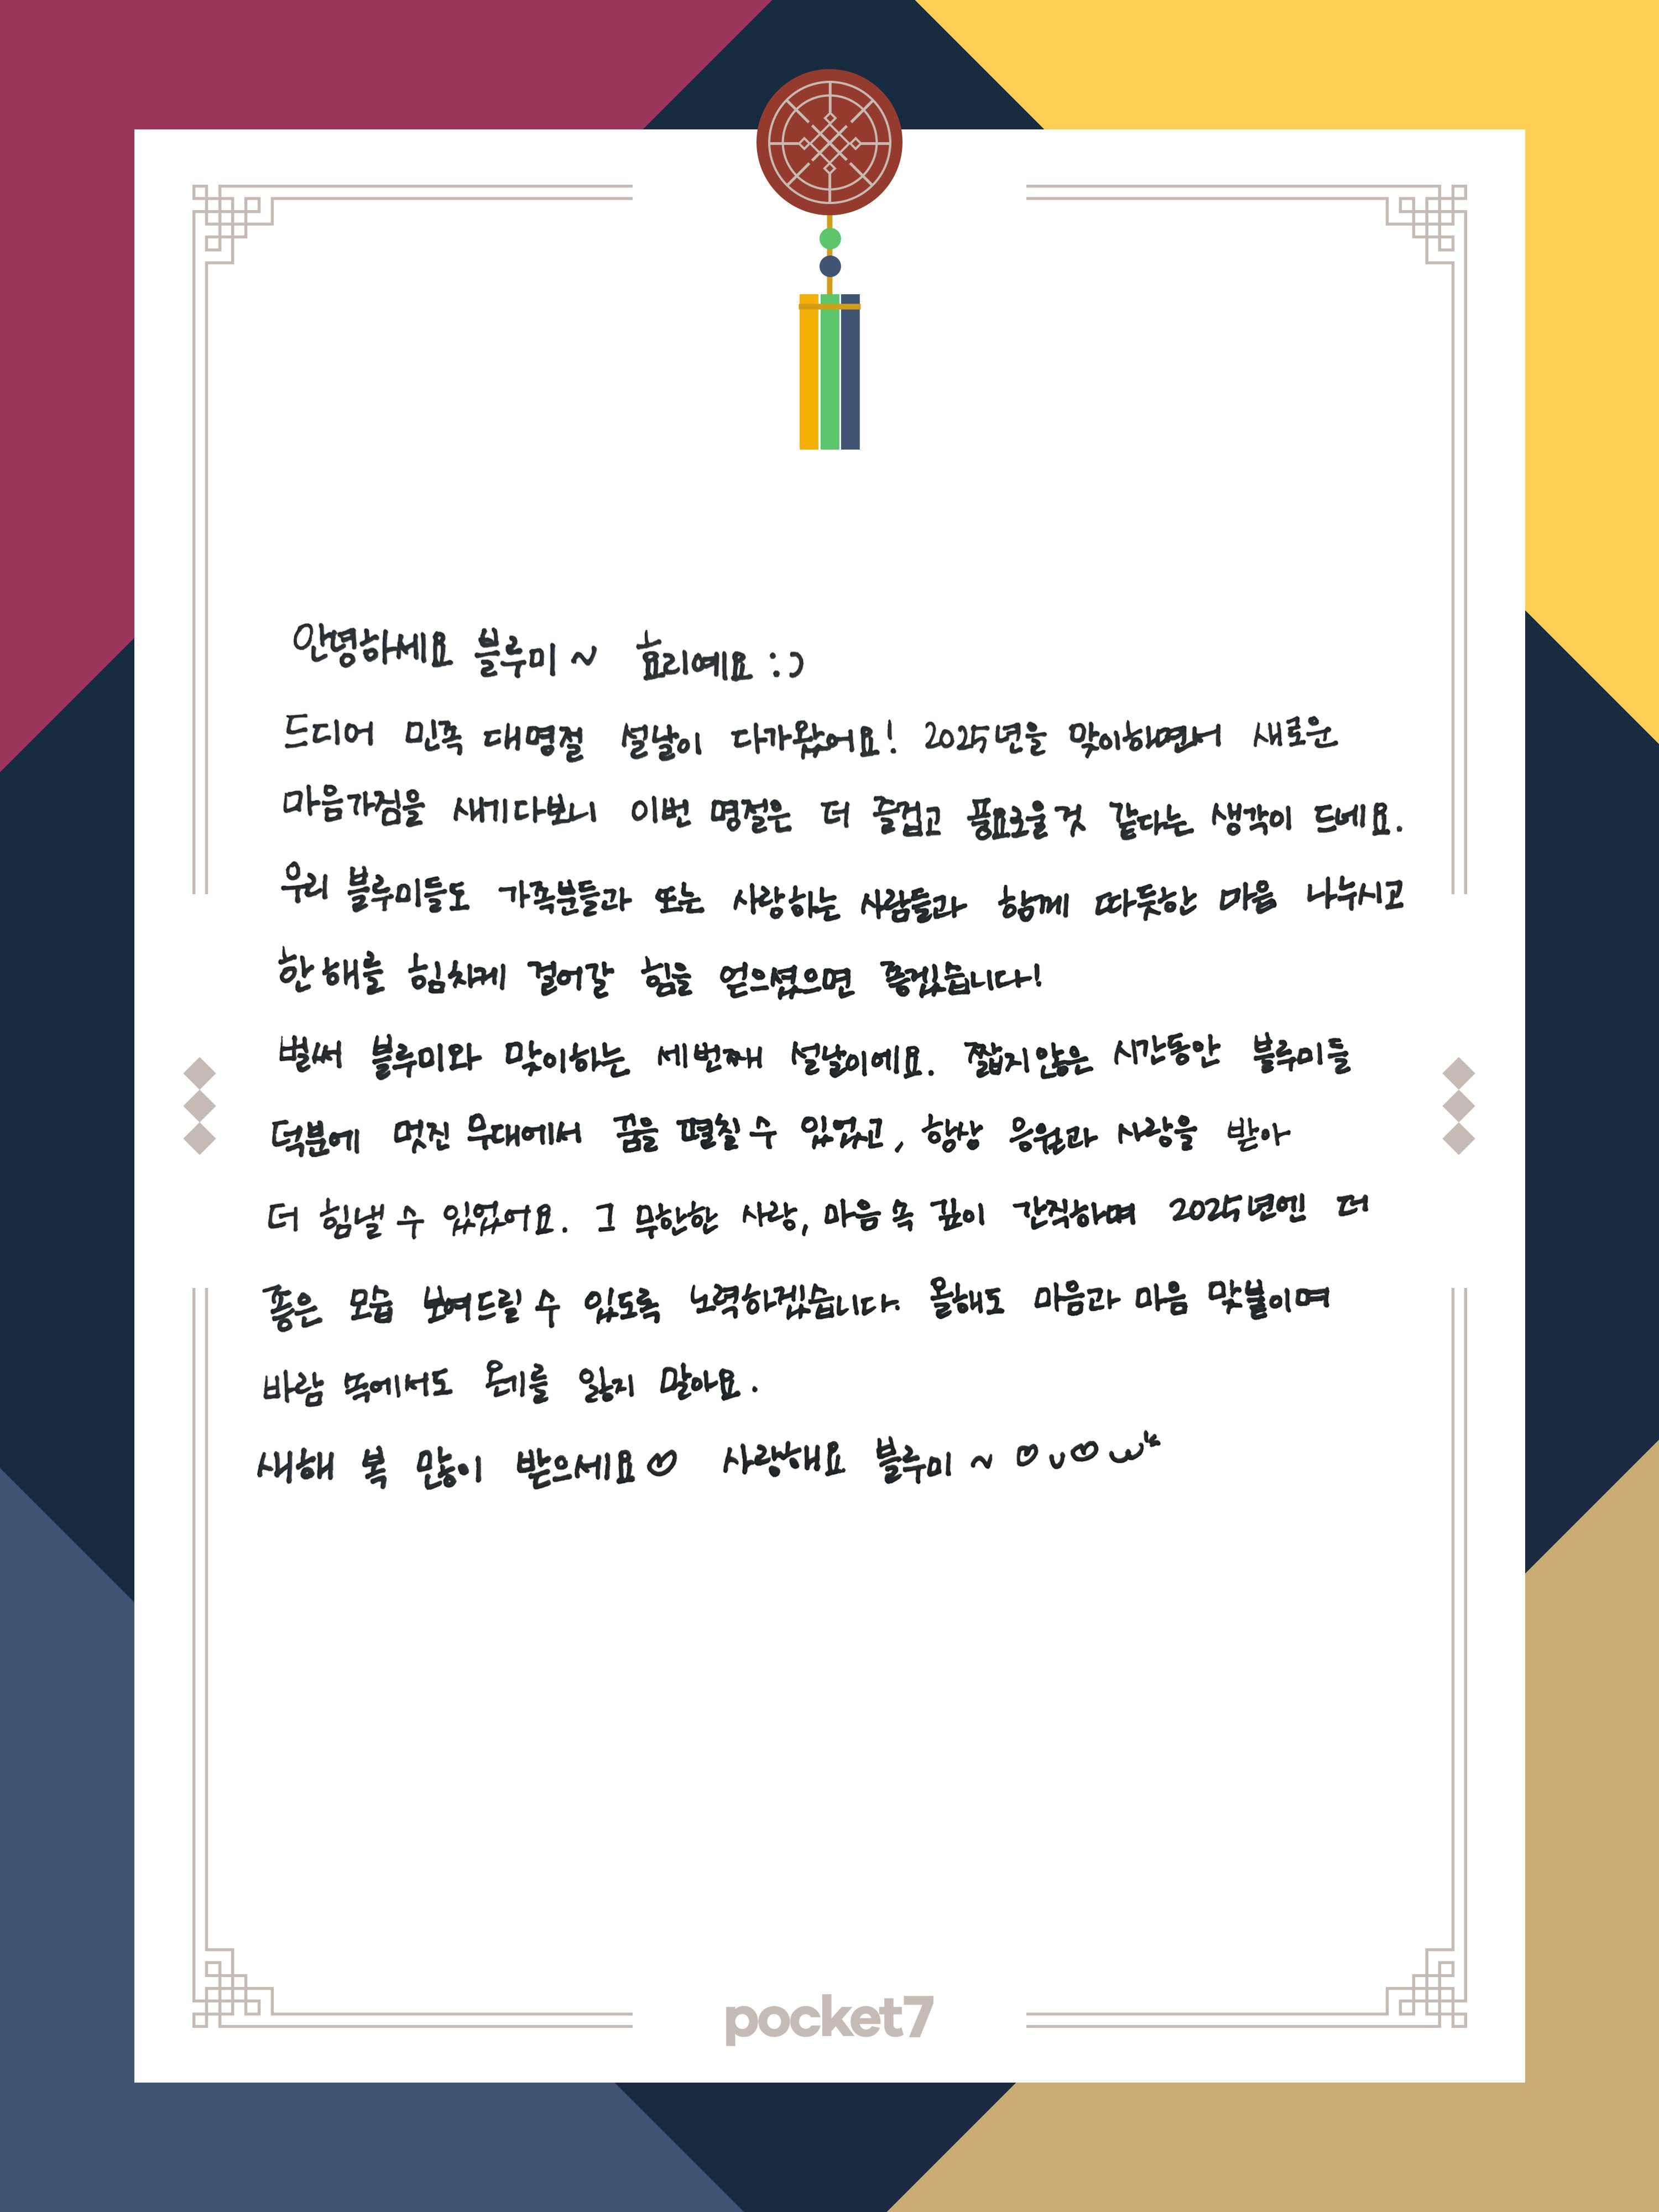 안녕하세요 블루미~ 효리예요 :)
드디어 민족 대명절 설날이 다가왔어요! 2025년을 맞이하면서 새로운
마음가짐을 새기다보니 이번 명절은 더 즐겁고 풍요로울것 같다는 생각이 드네요.
우리 블루미들도 가족분들과 또는 사랑하는 사람들과 함께 따뜻한 마음 나누시고
한 해를 힘차게 걸어갈 힘을 얻으셨으면 좋겠습니다!
벌써 블루미와 맞이하는 세번째 설날이에요. 짧지않은 시간동안 블루미들
덕분에 멋진 무대에서 꿈을 펼칠 수 있었고, 항상 응원과 사랑을 받아
더 힘낼 수 있었어요. 그 무한한 사랑, 마음 속 깊이 간직하며 2025년엔 더
좋은 모습 보여드릴 수 있도록 노력하겠습니다. 올해도 마음과 마음 맞붙이며
바람 속에서도 온기를 잃지 말아요.
새해 복 많이 받으세요♡ 사랑해요 블루미~ ♡◡♡
pocket7